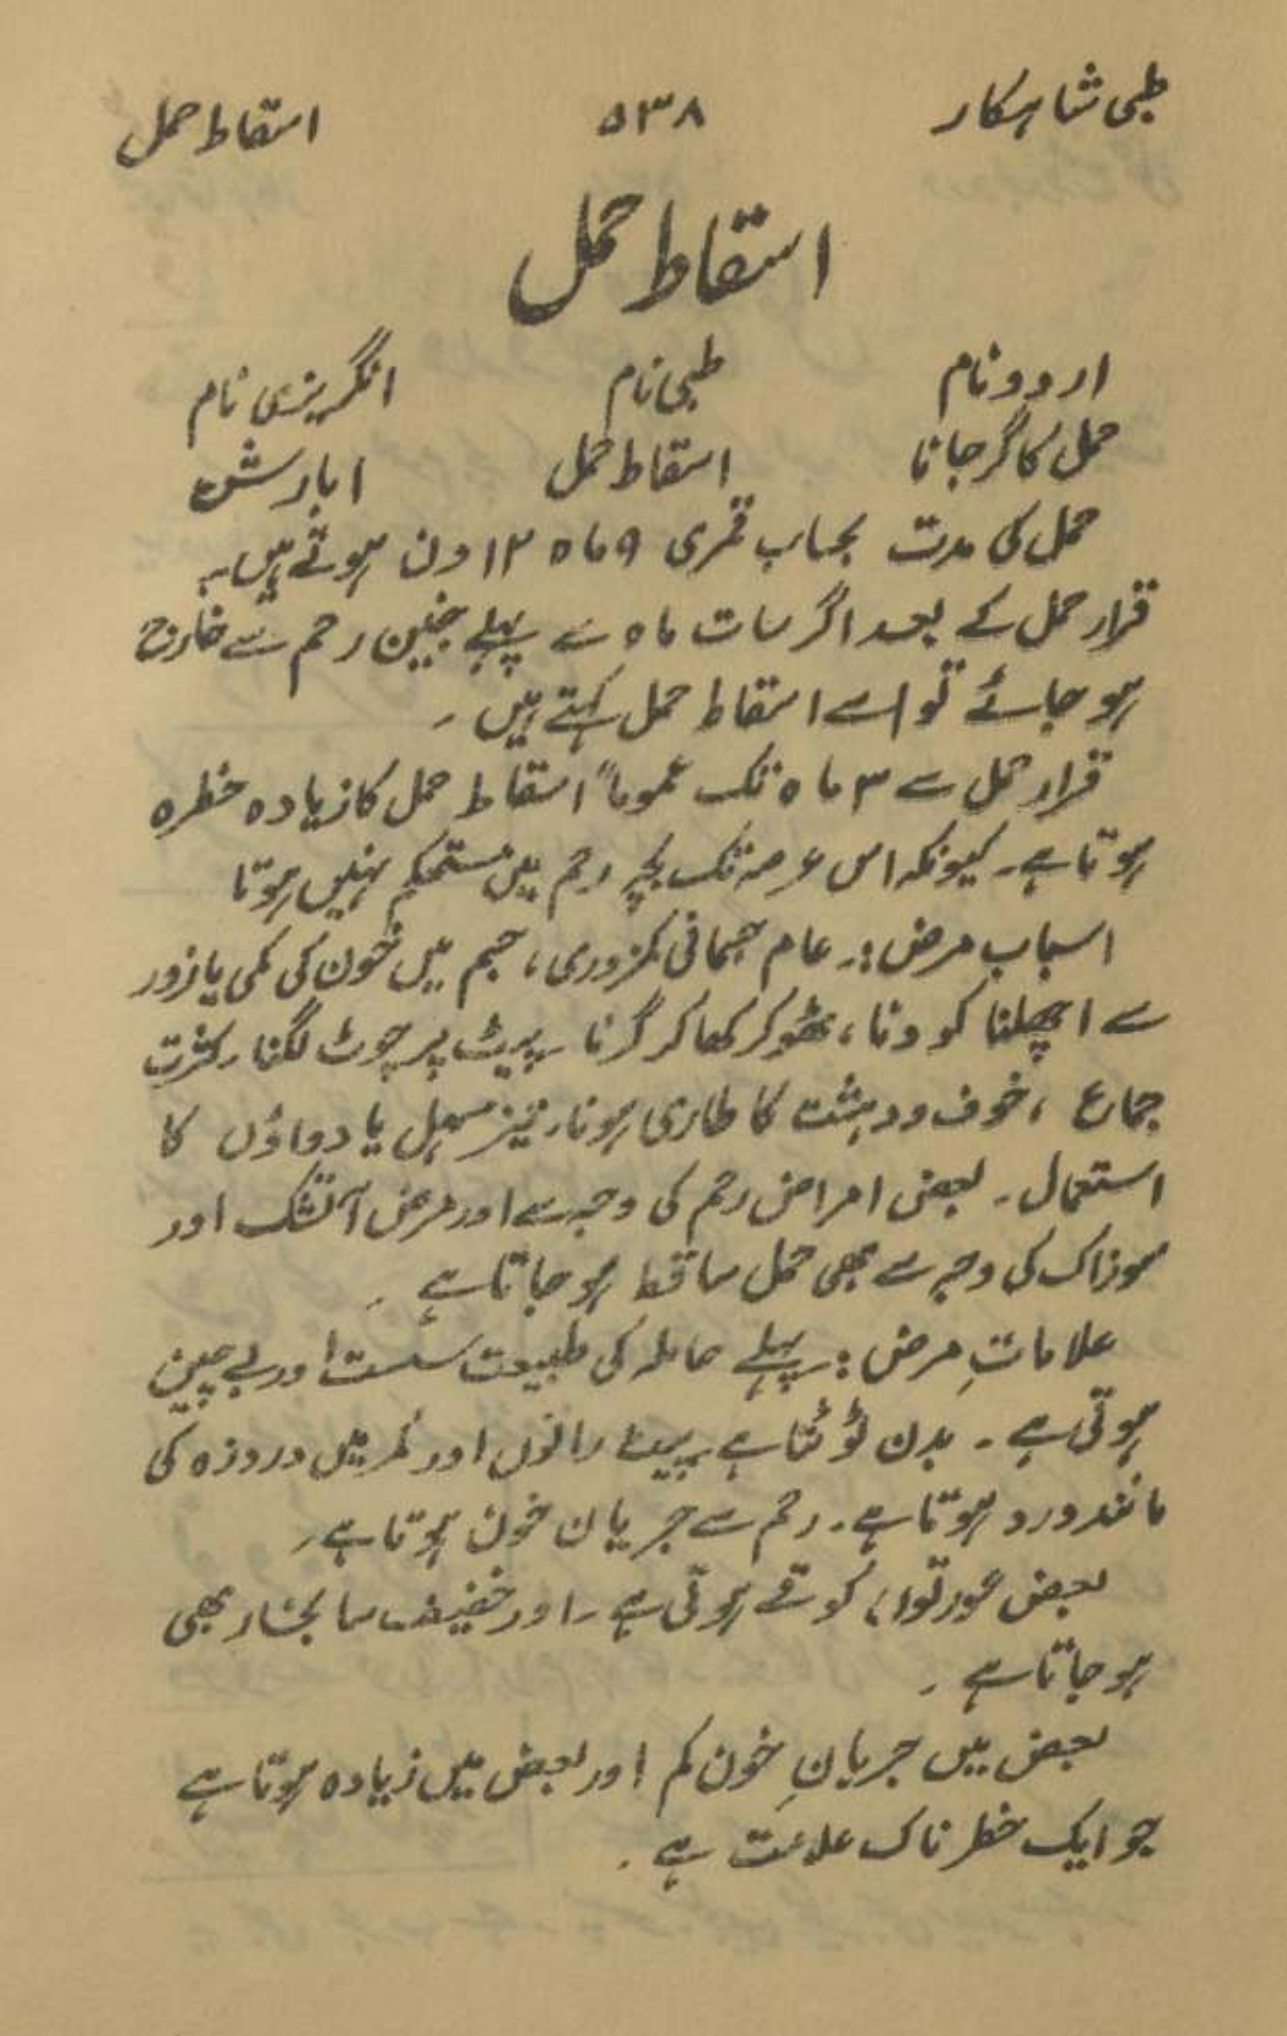 طبی شاہکار ۵۳۸ اسقاط حمل
اسقاط حمل
اردو نام طبی نام انگریزی نام
حمل کا گر جانا اسقاط حمل ابارشن
حمل کی مدت بحساب قمری ۹ ماہ ۱۲ دن ہوتے ہیں۔
قرار حمل کے بعد اگر سات ماہ سے پہلے جنین رحم سے خارج
ہو جائے تو اسے اسقاط حمل کہتے ہیں۔
قرار حمل سے ۳ ماہ تک عموماً اسقاط حمل کا زیادہ خطرہ
ہوتا ہے۔ کیونکہ اس عرصہ تک بچہ رحم میں مستحکم نہیں ہوتا
اسباب مرض:۔ عام جسمانی کمزوری، جسم میں خون کی کمی یا زور
سے اچھلنا کودنا، ٹھوکر کھا کر گرنا۔ پیٹ پر چوٹ لگنا۔ کثرت
جماع، خوف و دہشت کا طاری ہونا۔ تیز مسہل یا دواؤں کا
استعمال۔ بعض امراض رحم کی وجہ سے اور مرض آتشک اور
سوزاک کی وجہ سے بھی حمل ساقط ہو جاتا ہے۔
علاماتِ مرض:۔ پہلے حاملہ کی طبیعت سست اور بے چین
ہوتی ہے۔ بدن ٹوٹتا ہے۔ پیٹ رانوں اور کمر میں دردزہ کی
مانند درد ہوتا ہے۔ رحم سے جریان خون ہوتا ہے۔
بعض عورتوں کو قے ہوتی ہے۔ اور خفیف سا بخار بھی
ہو جاتا ہے۔
بعض میں جریانِ خون کم اور بعض میں زیادہ ہوتا ہے
جو ایک خطرناک علامت ہے۔